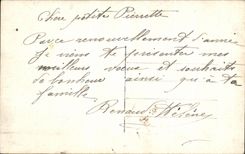 Chère petite Pierrette
Par ce renouvellement d'année
je viens te présenter mes
meilleurs vœux et souhaits
de bonheur ainsi qu'à ta
famille.
Renaud Hélène